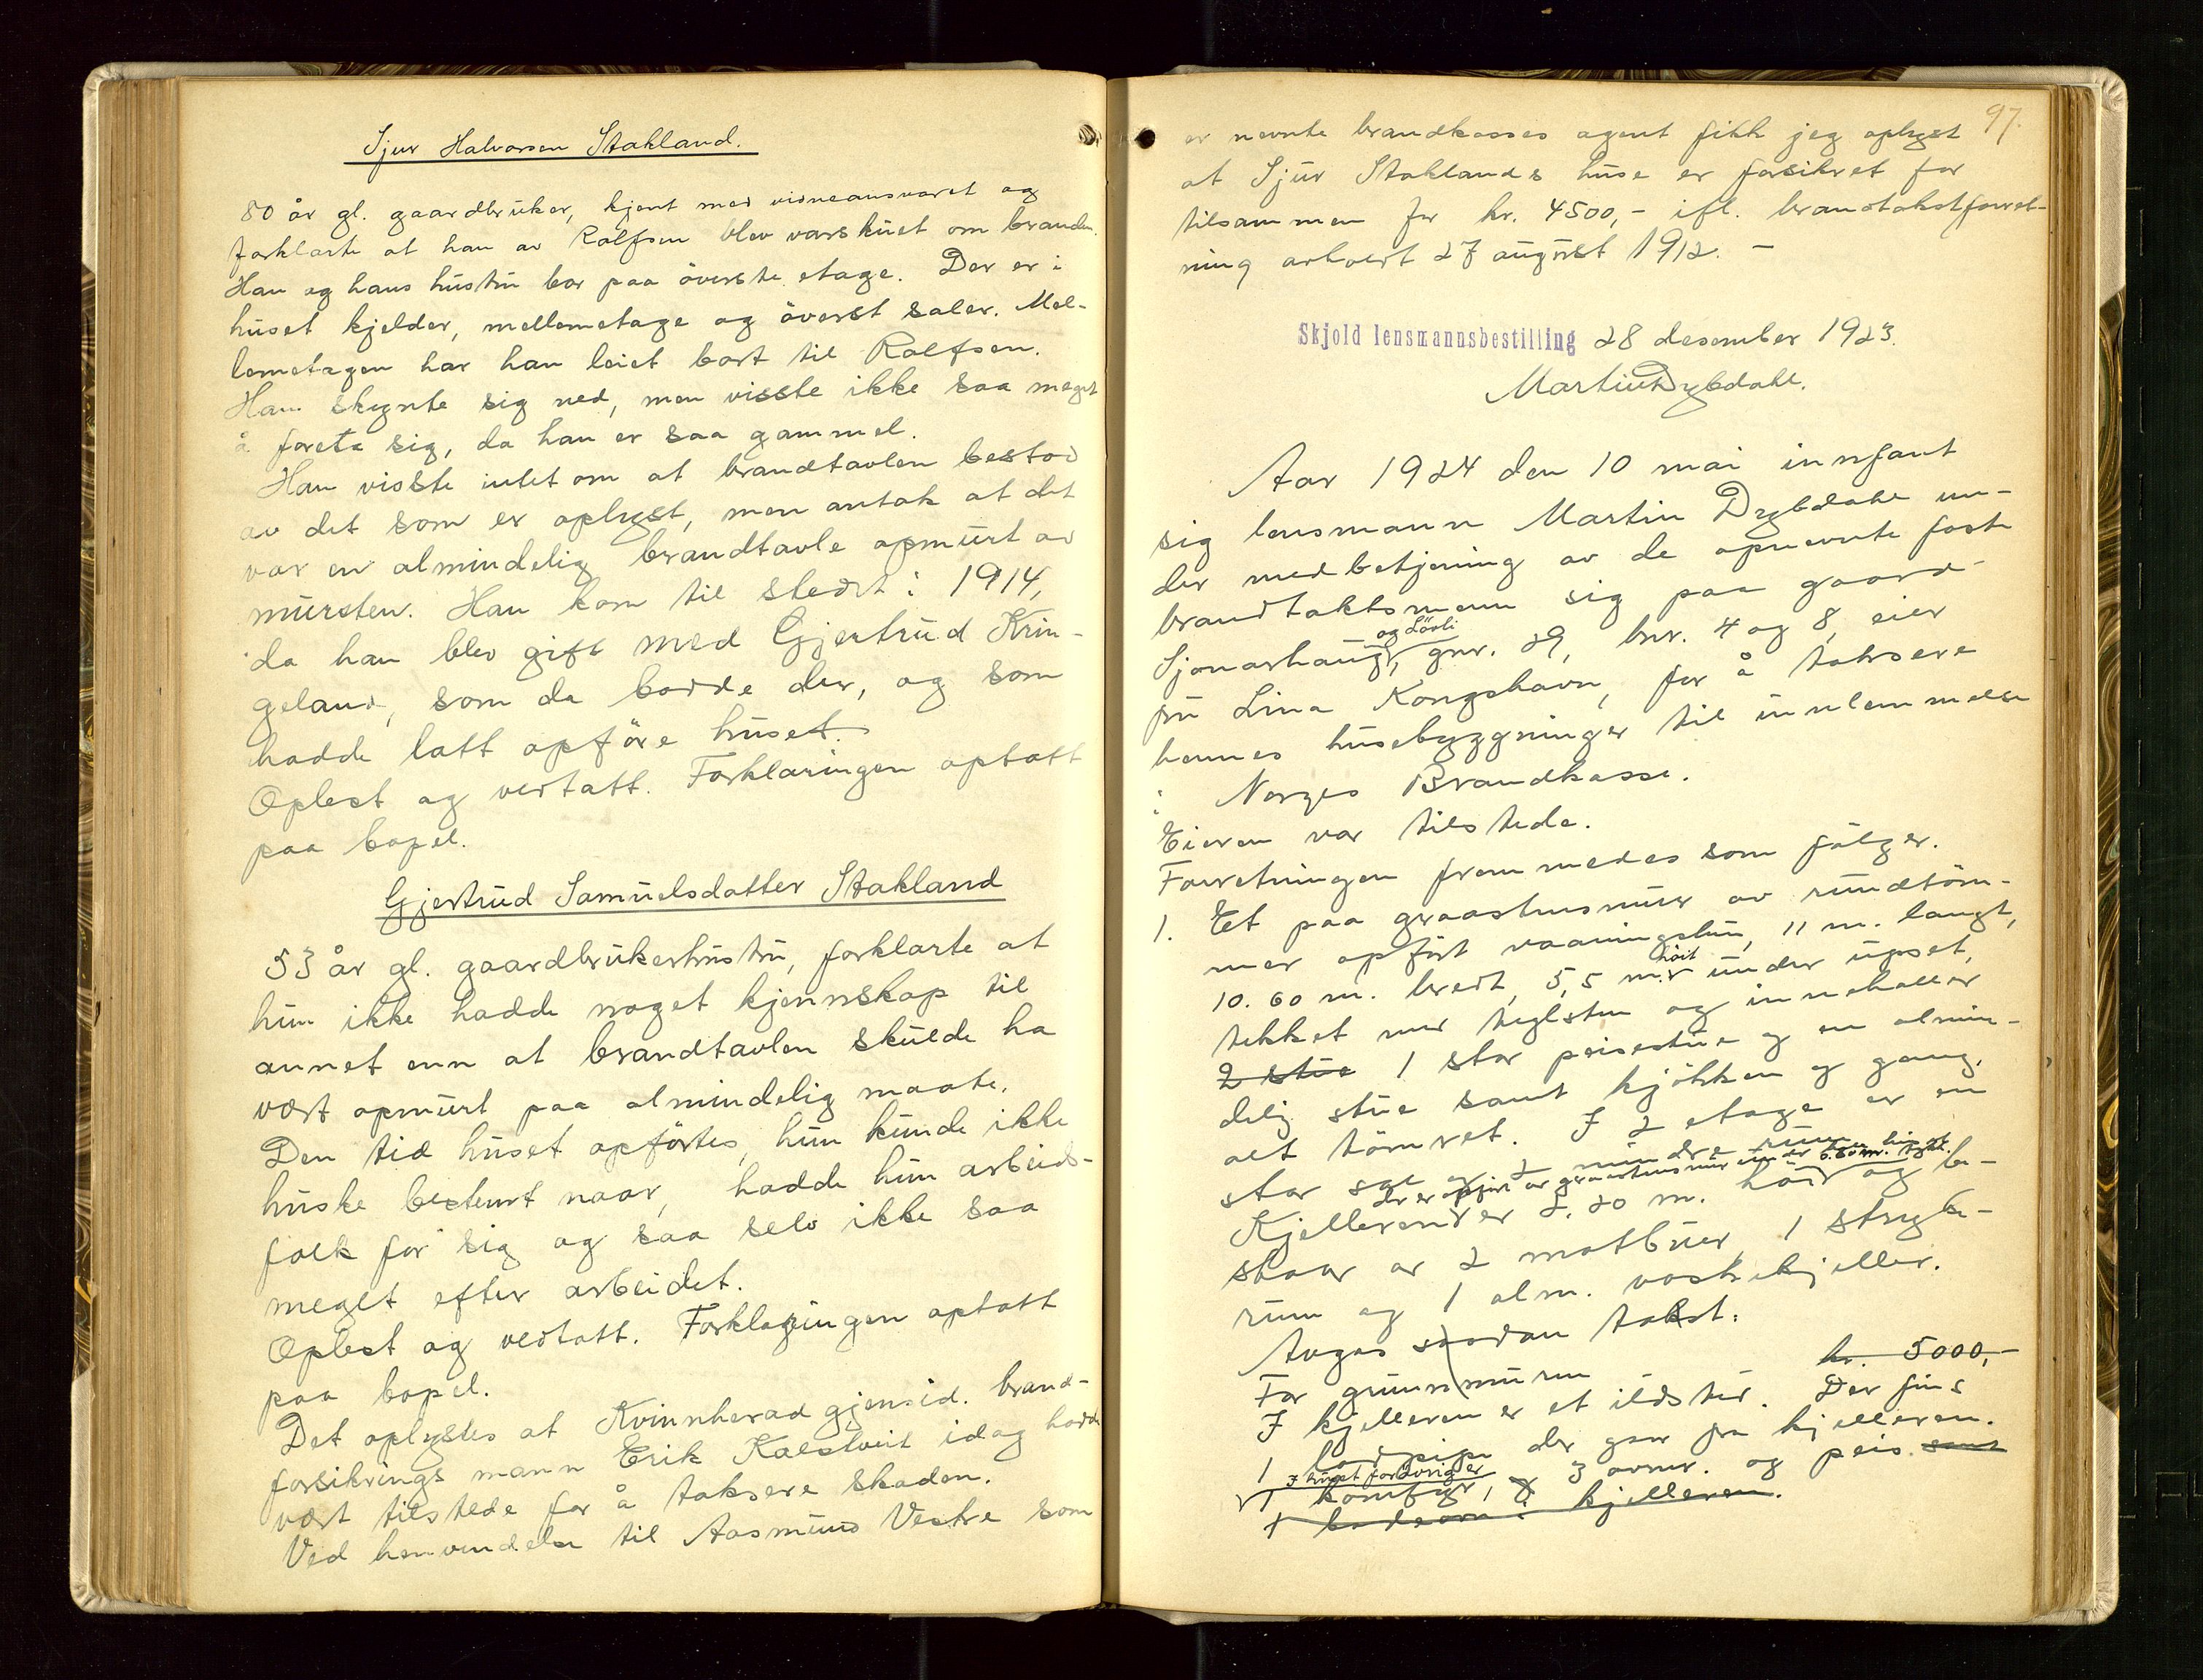 Sjur Halvorsen Stakland.
80 år gl. gaardbruker, kjent med vidneansvaret og
forklarte at han av Rolfsen blev varskuet om branden.
Han og hans hustru bor paa överste etage. Der er i
huset kjelder, mellemetage og överst saler. Mel-
lemetagen har han leiet bort til Rolfsen.
Han skyndte sig ned, men visste ikke saa meget
å foreta sig, da han er saa gammel.
Han visste intet om at brandtavlen bestod
av det som er oplyst, men antok at det
var en almindelig brandtavle opmurt av
mursten. Han kom til stedet i 1914,
da han blev gift med Gjertrud Krin-
geland, som da bodde der, og som
hadde latt opföre huset.
Oplest og vedtatt. Forklaringen optatt
paa bopel.
Gjertrud Samuelsdatter Stakland
53 år gl. gaardbrukerhustru, forklarte at
hun ikke hadde noget kjennskap til
annet enn at brandtavlen skulde ha
vært opmurt paa almindelig maate.
Den tid huset opförtes, hun kunde ikke
huske bestemt naar, hadde hun arbeids-
folk for sig og saa selv ikke saa
meget efter arbeidet.
Oplest og vedtatt. Forklaringen optatt
paa bopel.
Det oplystes at Kvinnherad gjensid. brand-
forsikrings mann Erik Kalstveit idag hadde
vært tilstede for å taksere skaden.
Ved henvendelse til Aasmund Vestre som
97.
er nevnte brandkasses agent fikk jeg oplyst
at Sjur Staklands huse er forsikret for
tilsammen for kr. 4500,- ifl. brandtakstforret-
ning avholdt 27 august 1912. -
Skjold lensmannsbestilling 28 desember 1923.
Martin Dybdahl.
Aar 1924 den 10 mai innfant
sig lensmann Martin Dybdahl un-
der medbetjening av de opnevnte faste
brandtakstsmenn sig paa gaard-
og Lövli
Sjonarhaug, gnr. 29, bnr. 4 og 8, eier
fru Lina Kongshavn, for å taksere
hennes husebyggninger til innlemmelse
i Norges Brandkasse.
Eieren var tilstede.
Forretningen fremmedes som fölger.
1. Et paa graastensmur av rundtöm-
mer opfört vaaningshus, 11 m. langt,
höit
10.60 m. bredt, 5,5 m. under upset,
tekket med teglsten og inneholder
2 stue 1 stor peisestue og en almin-
delig stue samt kjökken og gang,
alt tömret. I 2 etage er en
stor sal og 2 mindre rum
der er opfört av graastensmur under 6.60 m.
Kjelleren er 2.20 m. höi og be-
staar av 2 matbuer, 1 stryke-
rum og 1 alm. vaskekjeller.
Avgav saadan takst:
For grunnmuren kr. 5000,-
I kjelleren er et ildsted. Der fins
1 lodpipe der gaar fra kjelleren.
I huset forövrig er
1 komfyr, og 3 ovner. og peis samt
1 badeovn i kjelleren.